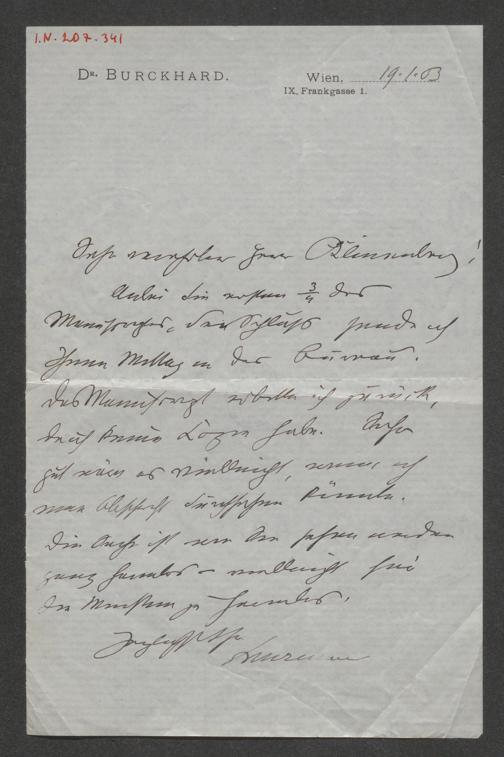 I.N. 207.341
DR. BURCKHARD.
Wien, 19.1.03
IX, Frankgasse 1.
Sehr verehrter Herr
Anbei die ersten 3/4 des
Manuscriptes, den Schluß sende ich
Ihnen Mittag in das Bureau.
Das Manuscript erbitte ich zurück,
da ich keine Copie habe. Sehr
gut wäre es vielleicht, wenn ich
eine Abschrift durchsehen könnte.
Die Sache ist von den
ganz harmlos – vielleicht für
die Meisten zu harmlos.